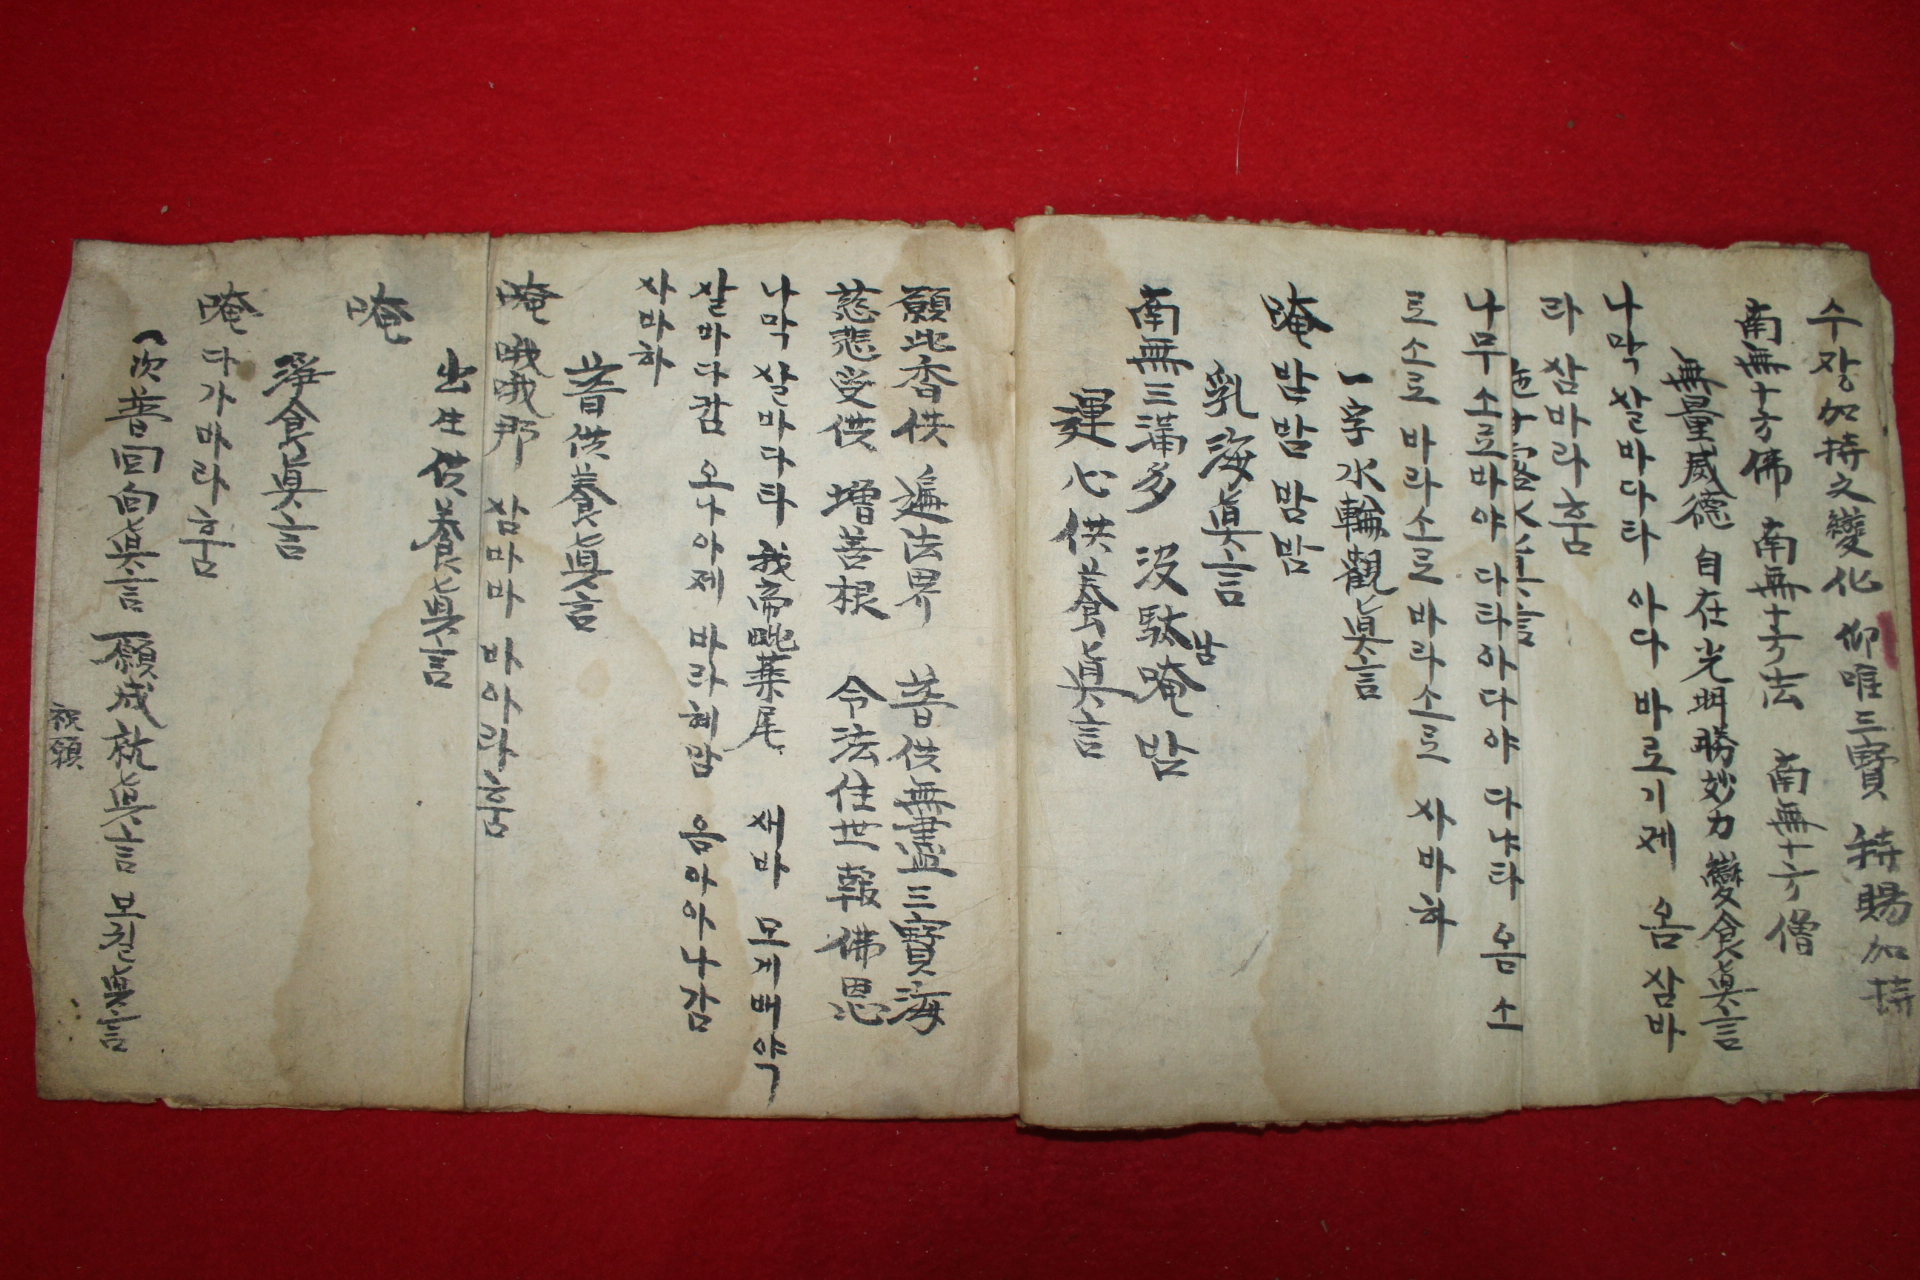 수장加持文變化 仰唯三寶 特賜加持
南無十方佛 南無十方法 南無十方僧
無量威德 自在光明勝妙力 變食眞言
나막살바다타 아다 바로기제 옴 삼바
라 삼바라훔
甘露水眞言
나무소로바야 다타아다야 다냐타 옴 소
로소로 바라소로 바라소로 사바하
一字水輪觀眞言
唵 밤밤밤밤
乳海眞言
南無三滿多 沒駄喃唵 밤
남
運心供養眞言
願此香供 遍法界 普供無盡三寶海
慈悲受供 增善根 令法住世報佛恩
나막 살바다타 我帝毗葉尾 새바 모계배약
살바다캄 오나아제 바라혜맘 옴아아나캄
사바하
普供養眞言
唵 哦哦那 삼바바 바아라 훔
出生供養眞言
唵
淨食眞言
唵 다가바라 훔
一次普回向眞言 願成就眞言 모궐眞言
祝願